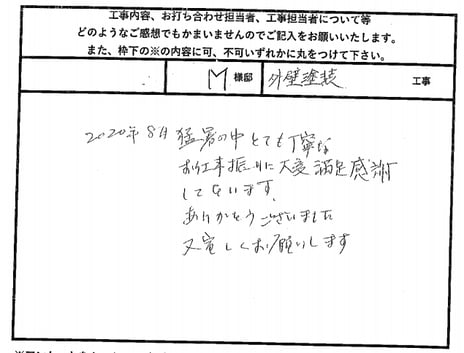 工事内容、お打ち合わせ担当者、工事担当者について等
どのようなご感想でもかまいませんのでご記入をお願いいたします。
また、枠下の※の内容に可、不可いずれかに丸をつけて下さい。
M 様邸 外壁塗装 工事
2020年8月猛暑の中とても丁寧な
お仕事振りに大変満足感謝
しています。
ありがとうございました
又宜しくお願いします